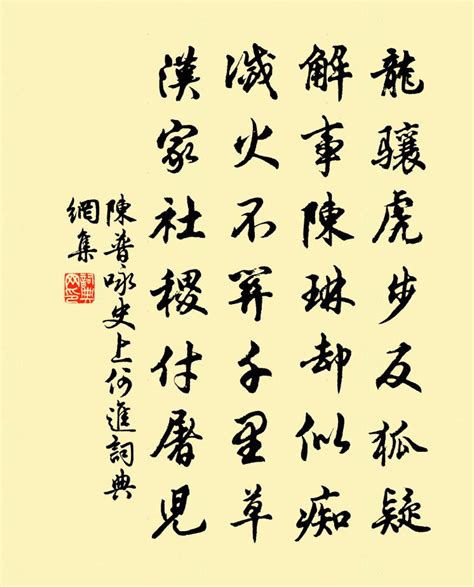 龍驤虎步反狐疑
解事陳琳却似痴
滅火不千里草
漢家社稷付屠兒
陳普咏史上何進詞典
網集